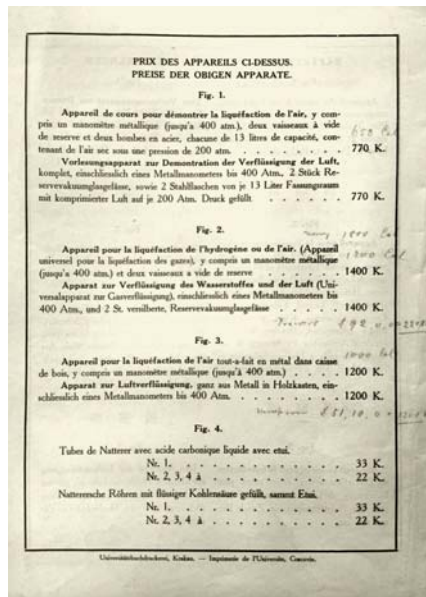 PRIX DES APPAREILS CI-DESSUS.
PREISE DER OBIGEN APPARATE.
Fig. 1.
Appareil de cours pour démontrer la liquéfaction de l'air, y com-
pris un manomètre métallique (jusqu'a 400 atm.), deux vaisseaux à vide
de reserve et deux bombes en acier, chacune de 13 litres de capacité, con-
tenant de l'air sec sous une pression de 200 atm. . . . . . . . . . 770 K.
Vorlesungsapparat zur Demontration der Verflüssigung der Luft,
komplet, einschliesslich eines Metallmanometers bis 400 Atm., 2 Stück Re-
servevakuumglasgefässe, sowie 2 Stahlflaschen von je 13 Liter Fassungsraum
mit komprimierter Luft auf je 200 Atm. Druck gefüllt . . . . . . 770 K.
Fig. 2.
1800
Appareil pour la liquéfaction de l'hydrogène ou de l'air. (Appareil
universel pour la liquéfaction des gazes), y compris un manomètre métallique
(jusqu'a 400 atm.) et deux vaisseaux a vide de reserve . . . . . 1400 K.
Apparat zur Verflüssigung des Wasserstoffes und der Luft (Uni-
versalapparat zur Gasverflüssigung), einschliesslich eines Metallmanometers bis
400 Atm., und 2 St. versilberte, Reservevakuumglasgefässe . . . . 1400 K.
Fig. 3.
1000
Appareil pour la liquéfaction de l'air tout-a-fait en métal dans caisse
de bois, y compris un manomètre métallique (jusqu'à 400 atm.) . . . . 1200 K.
Apparat zur Luftverflüssigung, ganz aus Metall in Holzkasten, ein-
schliesslich eines Metallmanometers bis 400 Atm. . . . . . . . . 1200 K.
Fig. 4.
Tubes de Natterer avec acide carbonique liquide avec etui.
Nr. 1. . . . . . . . . . . . . . 33 K.
Nr. 2, 3, 4 à . . . . . . . . . . 22 K.
Natterersche Röhren mit flüssiger Kohlensäure gefüllt, sammt Etui.
Nr. 1. . . . . . . . . . . . . . 33 K.
Nr. 2, 3, 4 à . . . . . . . . . . 22 K.
Universitätsbuchdruckerei, Krakau. — Imprimerie de l'Université, Cracovie.